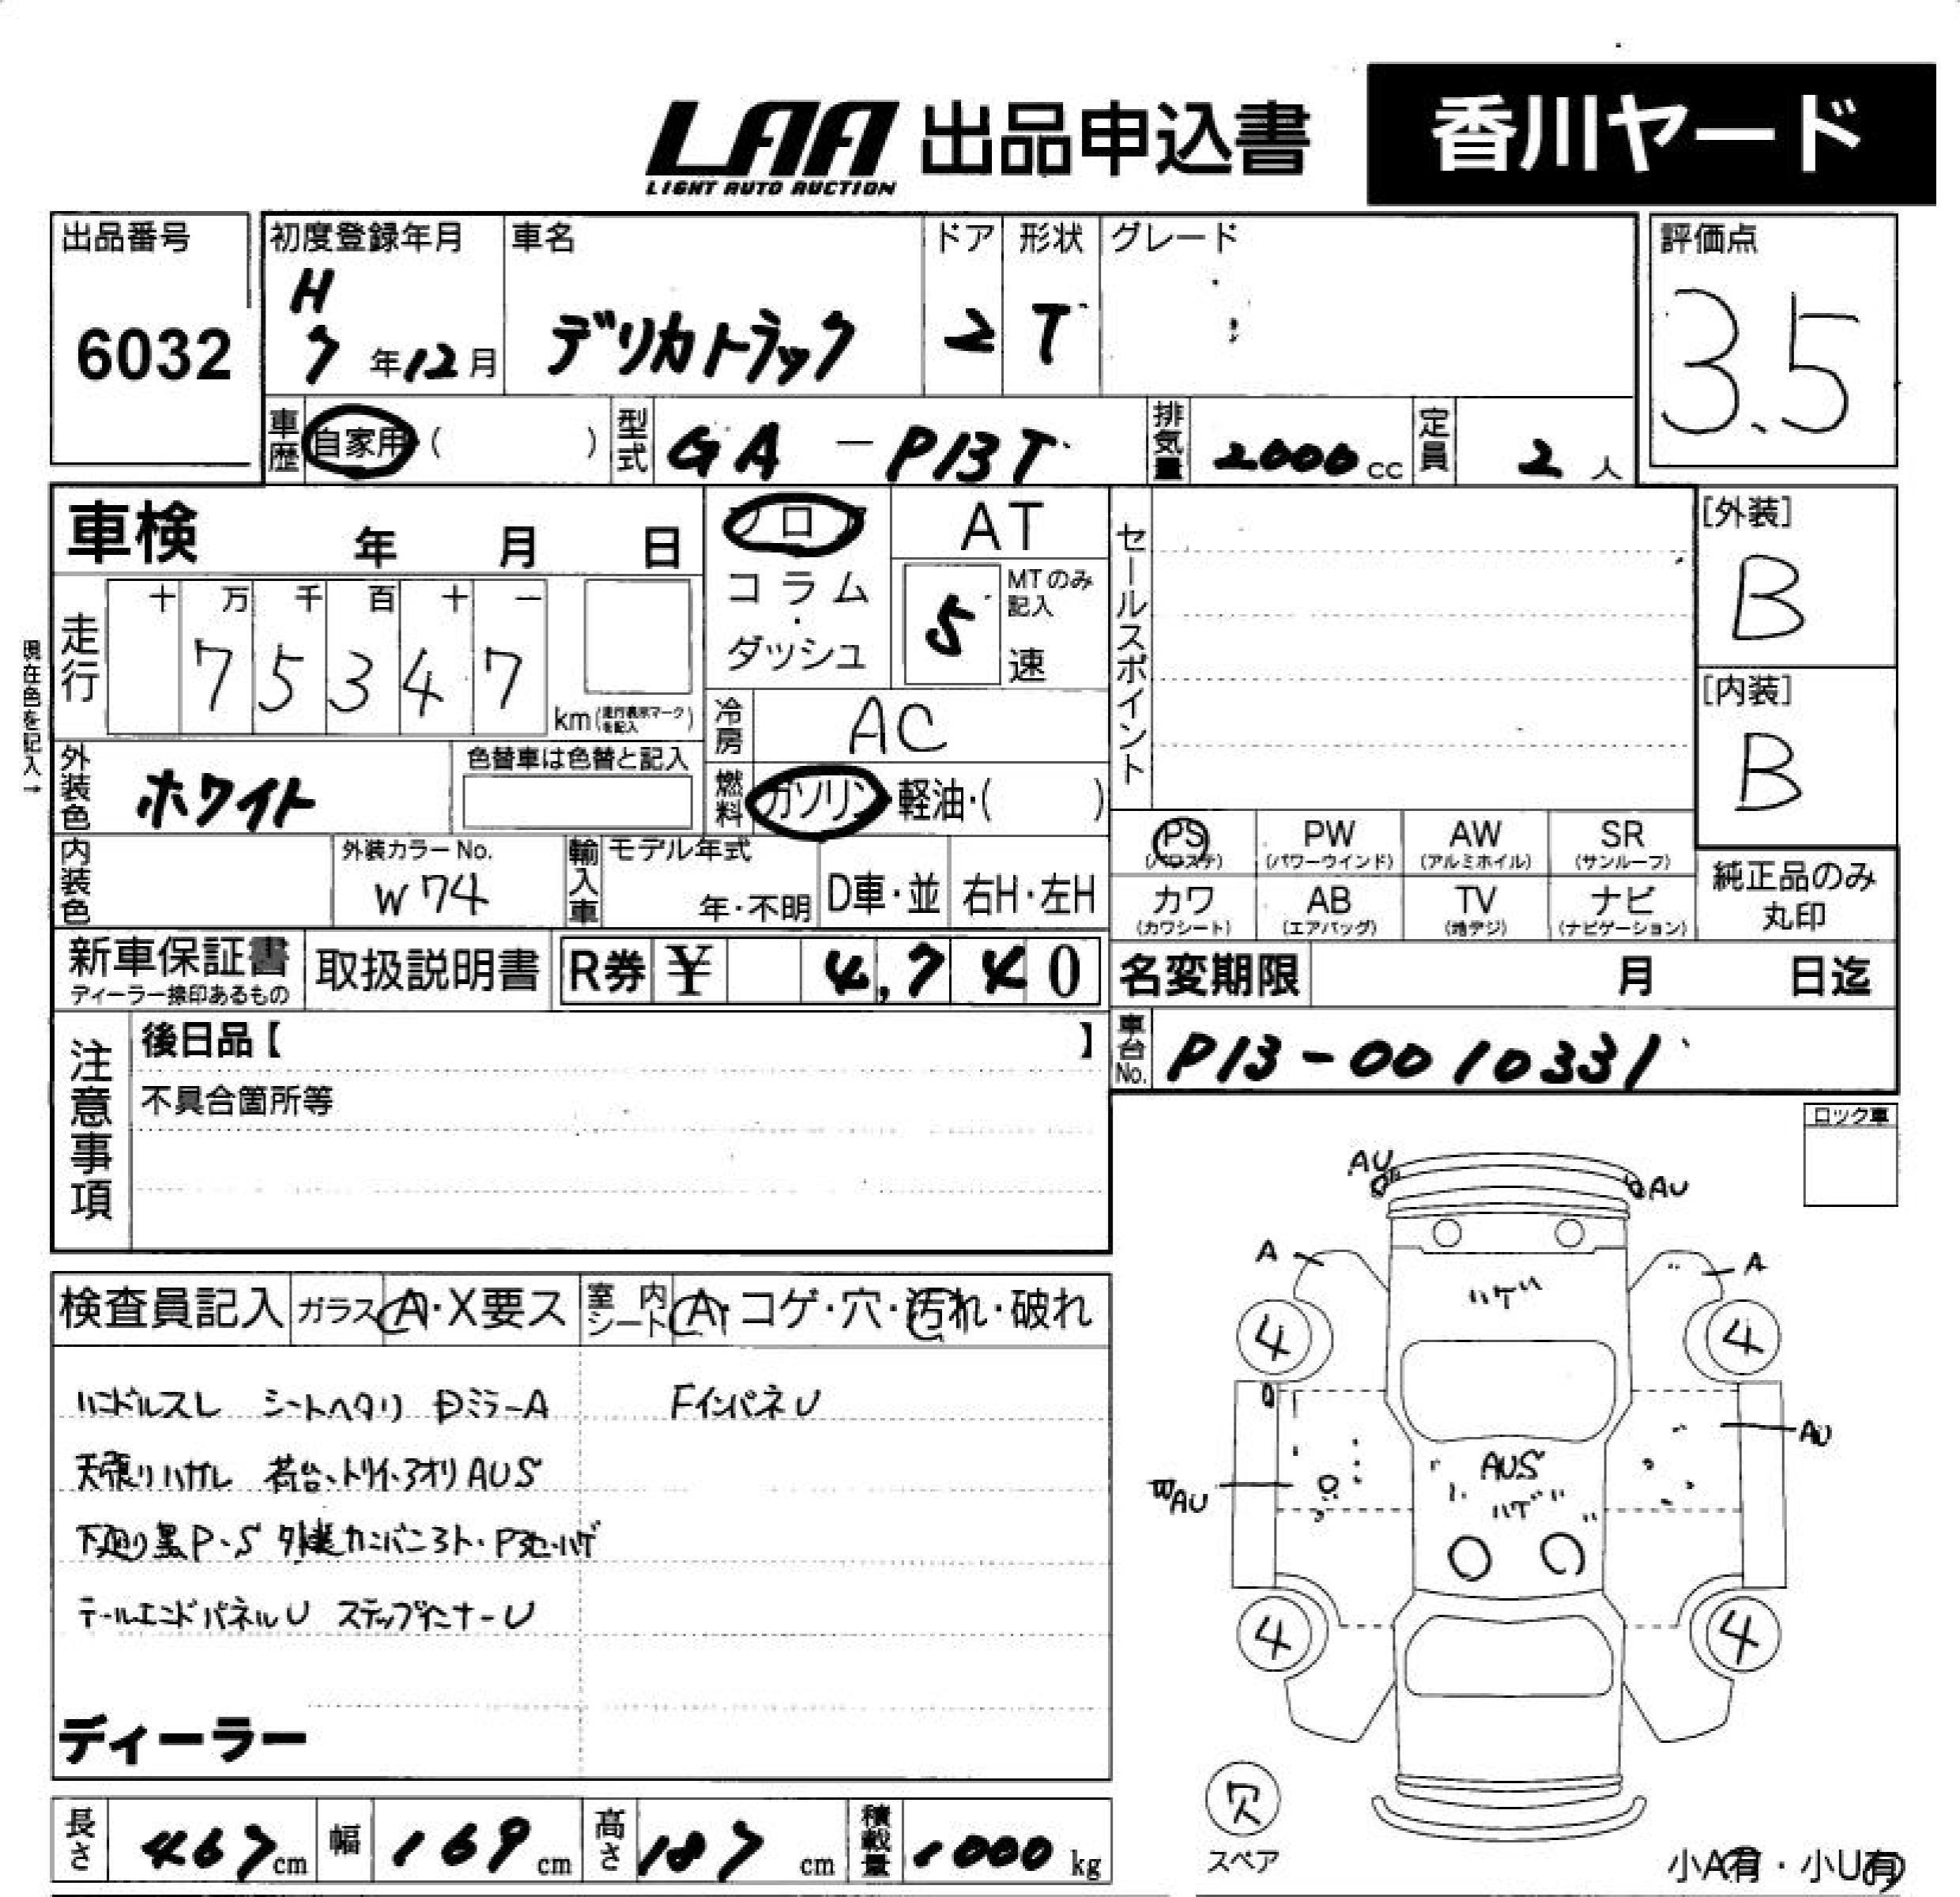 LAA 出品申込書 香川ヤード
LIGHT AUTO AUCTION
出品番号 初度登録年月 車名 ドア 形状 グレード 評価点
6032 H 7年12月 デリカトラック 2 T 3.5
車歴 自家用 ( ) 型式 GA - P13T 排気量 2000cc 定員 2人
車検 年 月 日 フロア AT セールスポイント [外装]
コラム・ダッシュ 5速 MTのみ記入 B
走行 十 万 千 百 十 一
75347 km (走行表示マークを記入)
現在色を記入→
冷房 AC [内装]
外装色 ホワイト 色替車は色替と記入 燃料 ガソリン 軽油・( ) B
PS (パワステ) PW (パワーウインド) AW (アルミホイル) SR (サンルーフ)
内装色 外装カラーNo. W74 輸入車 モデル年式 年・不明 D車・並 右H・左H
カワ (カワシート) AB (エアバッグ) TV (地デジ) ナビ (ナビゲーション) 純正品のみ丸印
新車保証書 ディーラー捺印あるもの 取扱説明書 R券 ¥ 4,740 名変期限 月 日迄
注意事項 後日品【 】 車台No. P13-0010331
不具合箇所等
ロック車
検査員記入 ガラス A・X要ス 室内シート A・コゲ・穴・汚れ・破れ
ハンドルスレ シートヘタリ Dミラー A FインパネU
天張りハガレ 荷台、トリイ、アオリ AUS
下廻り黒P・S カンバン
テールエンドパネルU ステップインナーU
ディーラー
AU AU
A A
ハゲ
4 4
AU
AUS
AU
ハゲ
4 4
欠
スペア
小A有・小U有
長さ 467cm 幅 169cm 高さ 187cm 積載量 1000kg